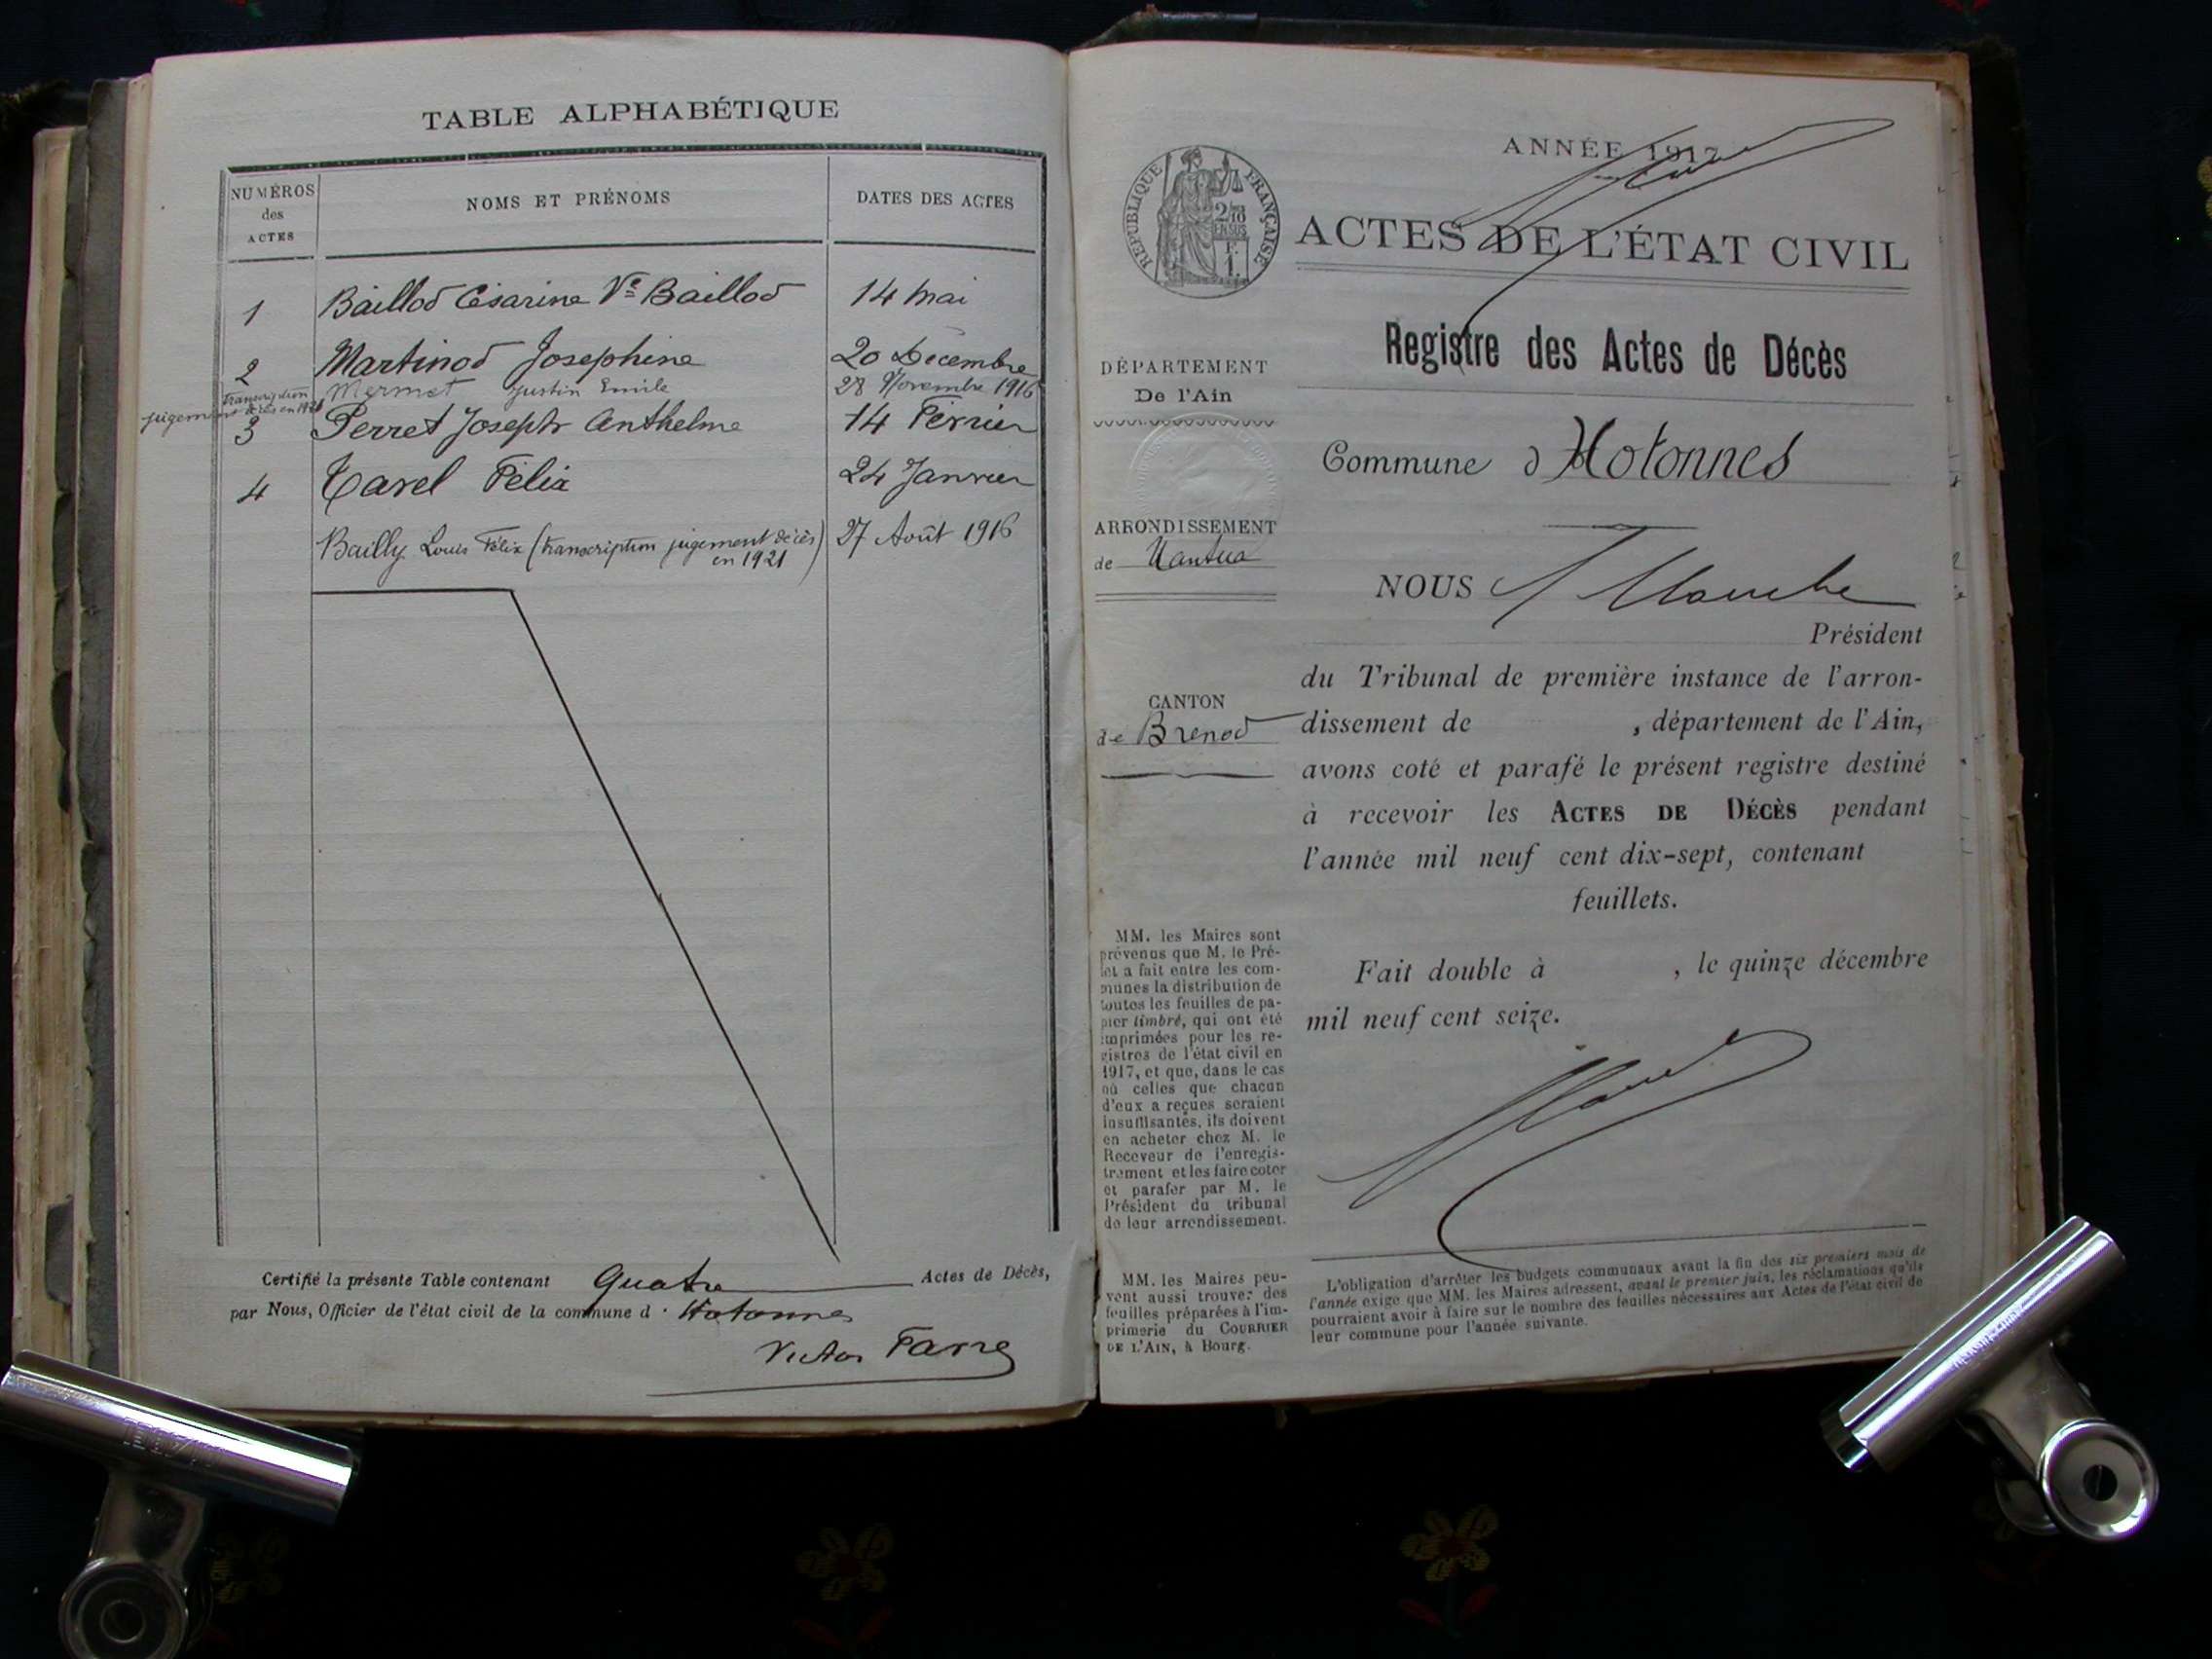 TABLE ALPHABÉTIQUE
NUMÉROS
des
ACTES
NOMS ET PRÉNOMS
DATES DES ACTES
1 Baillod Césarine Ve Baillod 14 Mai
2 Martinod Josephine 20 Décembre
transcription Mermet Justin Emile 28 Novembre 1916
jugement décès en 1921
3 Perret Joseph Anthelme 14 Février
4 Tavel Félix 24 Janvier
Bailly Louis Félix (transcription jugement décès 27 Août 1916
en 1921)
Certifié la présente Table contenant Quatre Actes de Décès,
par Nous, Officier de l'état civil de la commune d' Hotonnes
Victor Farre
ANNÉE 1917
RÉPUBLIQUE FRANÇAISE
2/10
EN SUS
F.
1.
ACTES DE L'ÉTAT CIVIL
Registre des Actes de Décès
DÉPARTEMENT
De l'Ain
Commune d'Hotonnes
ARRONDISSEMENT
de Nantua
CANTON
de Brenod
NOUS
Président
du Tribunal de première instance de l'arron-
dissement de , département de l'Ain,
avons coté et parafé le présent registre destiné
à recevoir les ACTES DE DÉCÈS pendant
l'année mil neuf cent dix-sept, contenant
feuillets.
Fait double à , le quinze décembre
mil neuf cent seize.
MM. les Maires sont
prévenus que M. le Pré-
fet a fait entre les com-
munes la distribution de
toutes les feuilles de pa-
pier timbré, qui ont été
imprimées pour les re-
gistres de l'état civil en
1917, et que, dans le cas
où celles que chacun
d'eux a reçues seraient
insuffisantes, ils doivent
en acheter chez M. le
Receveur de l'enregis-
trement et les faire coter
et parafer par M. le
Président du tribunal
de leur arrondissement.
MM. les Maires peu-
vent aussi trouver des
feuilles préparées à l'im-
primerie du COURRIER
DE L'AIN, à Bourg.
L'obligation d'arrêter les budgets communaux avant la fin des six premiers mois de
l'année exige que MM. les Maires adressent, avant le premier juin, les réclamations qu'ils
pourraient avoir à faire sur le nombre des feuilles nécessaires aux Actes de l'état civil de
leur commune pour l'année suivante.